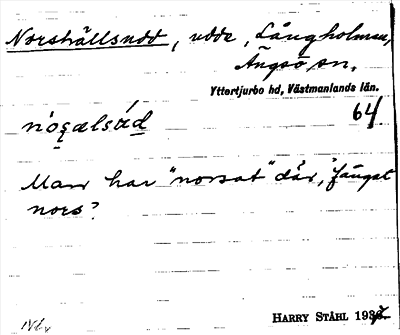 Norshällsudd, udde, Långholmen,
Ängsö sn.
Yttertjurbo hd, Västmanlands län.
64
Man har "norsat" där, "fångat
nors?
HARRY STÅHL 1937